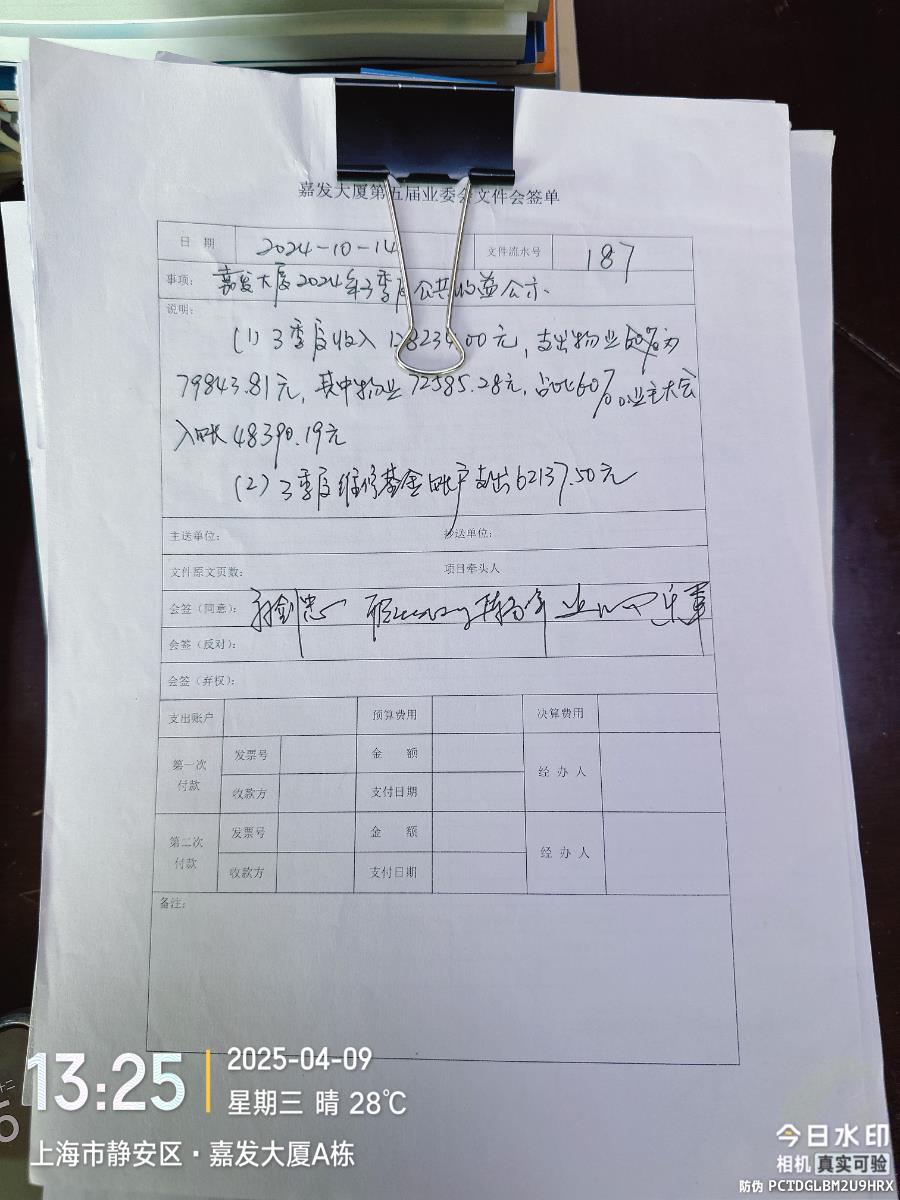 嘉发大厦第五届业委会文件会签单
日 期 2024-10-14 文件流水号 187
事项: 嘉发大厦2024年3季度公共收益公示、
说明:
(1) 3季度收入 128234.00元, 支出物业为
79843.81元, 其中物业72585.28元, 占比60%。业主大会
入账48390.19元
(2) 3季度维修基金账户支出62137.50元
主送单位: 抄送单位:
文件原文页数: 项目牵头人
会签（同意）:
会签（反对）:
会签（弃权）:
支出账户 预算费用 决算费用
第一次付款 发票号 金 额 经 办 人
收款方 支付日期
第二次付款 发票号 金 额 经 办 人
收款方 支付日期
备注:
13:25 2025-04-09
星期三 晴 28℃
上海市静安区·嘉发大厦A栋
今日水印
相机 真实可验
防伪 PCTDGLBM2U9HRX